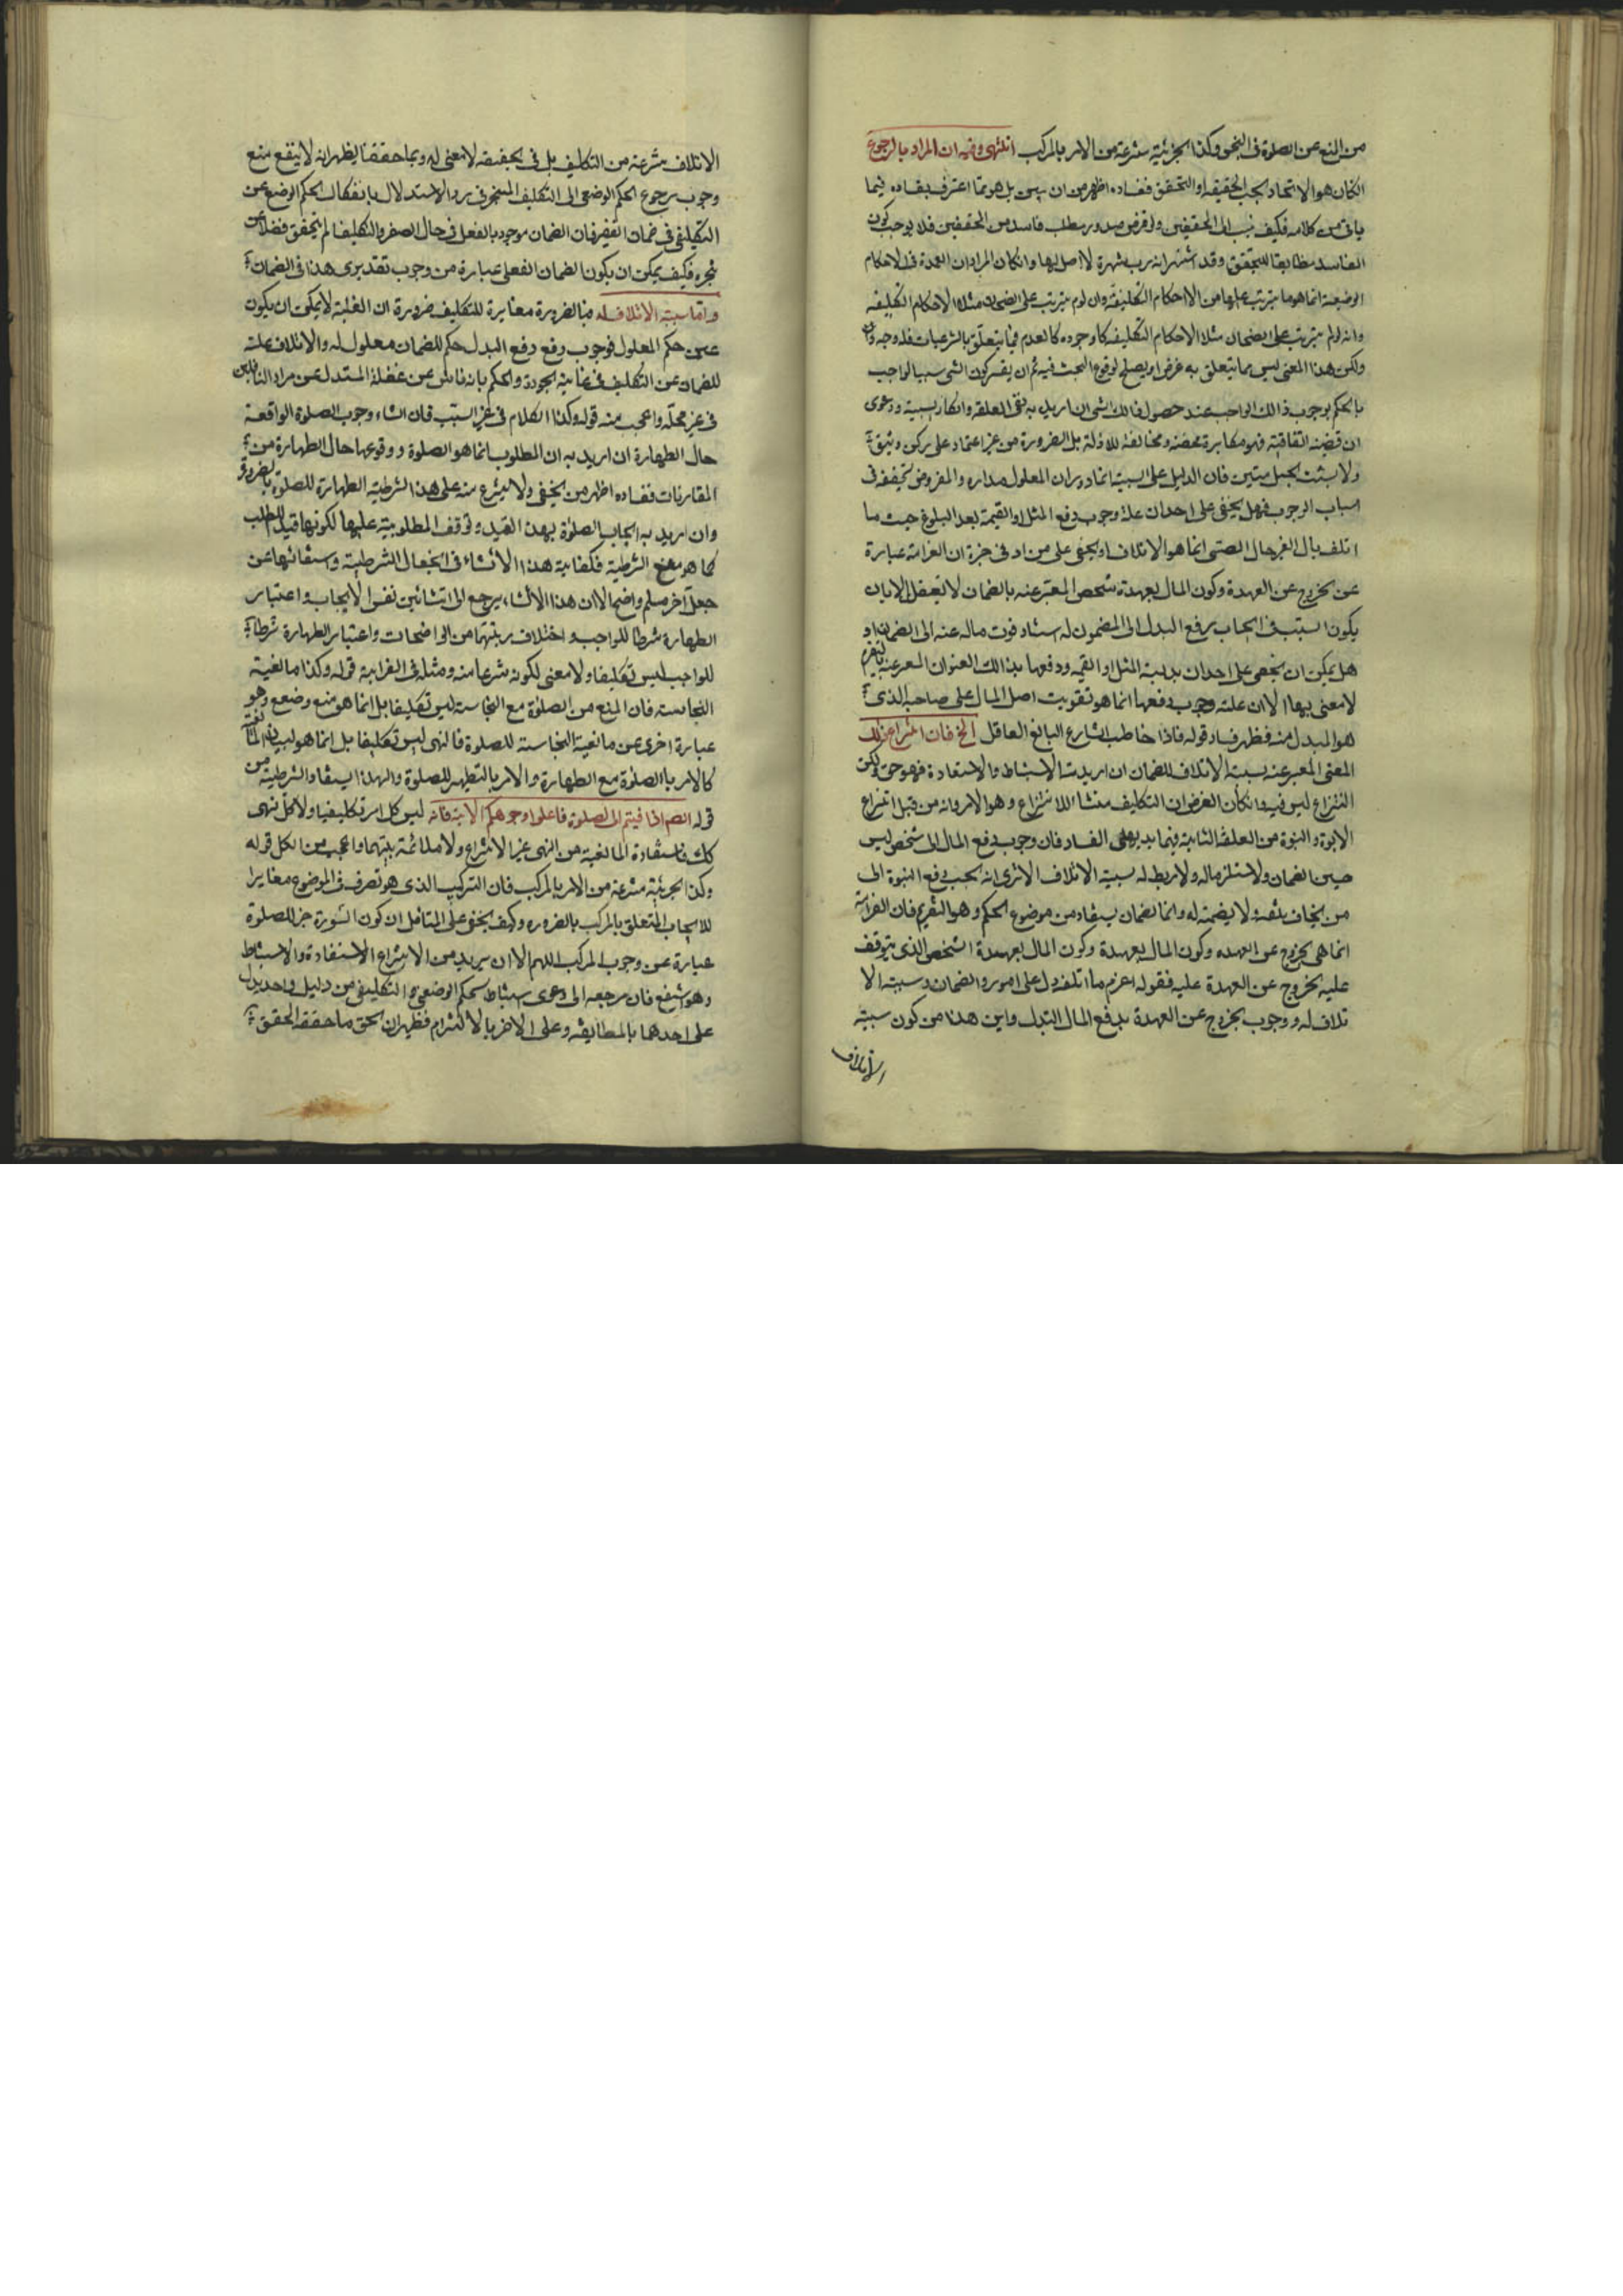 من المنع عن الصلوة فى النجس وكذا الجزئية منتزعة من الامر بالمركب انتهى وفيه ان المراد بالرجوع
انكان هو الاتحاد بحسب الحقيقة او التحقق ففساده اظهر من ان يبين بل هو مما اعترف بفساده فيما
ياتى من كلامه فكيف ينسب الى المحققين ولو فرض صدور مطلب فاسد من المحققين فلا يوجب كون
الفاسد مطابقا للتحقيق وقد اشتهر انه رب شهرة لا اصل لها وانكان المراد ان العمدة فى الاحكام
الوضعية انما هو ما يترتب عليها من الاحكام التكليفية وان لوم يترتب على الضمان مثلا الاحكام التكليفية
وانه لولم يترتب على الضمان مثلا الاحكام التكليفية كان وجوده كالعدم فيما يتعلق بالشرعيات فله وجه
ولكن هذا المعنى ليس مما يتعلق به غرض او يصلح لوقوع البحث فيه ثم ان يفسر كون الشئ سببا لواجب
بالحكم بوجوب ذالك الواجب عند حصول ذالك الشئ ان اريد به نفى العلقة وانكار السببية ودعوى
ان قضية اتفاقية فهو مكابرة محضة ومخالفة للادلة بل الضرورة من غير اعتماد على ركن وثيق
ولا تشبث بحبل متين فان الدليل على السببية انما دوران المعلول مداره والمفروض تحققه فى
اسباب الوجوب فهل يخفى على احد ان علة وجوب دفع المثل او القيمة بعد البلوغ حيث ما
اتلف مال الغير حال الصبى انما هو الاتلاف او يخفى على من ادنى خبرة ان الغرامة عبارة
عن الخروج عن العهدة وكون المال بعهدة شخص المعبر عنه بالضمان لا يعقل الا بان
يكون السبب فى ايجاب دفع البدل الى المضمون له استناد فوت ماله عنه الى الضمان او
هل يمكن ان يخفى على احد ان بدلية المثل او القيمة ودفعها بذالك العنوان المعبر عنه بالتغريم
لا معنى لها الا ان علة وجوب دفعها انما هو تفويت اصل المال على صاحبه الذى
هو المبدل منه فظهر فساد قوله فاذا خاطب الشارع البالغ العاقل الخ فان انتزاع ذلك
المعنى المعبر عنه بسببية الاتلاف للضمان ان اريد به الاستنباط والاستفادة فهو حق ولكن
النزاع ليس فيه وانكان الغرض ان التكليف منشاء للانتزاع وهو الامر وانه من قبيل انتزاع
الابوة والبنوة من العلقة الثابتة فيهما بديهى الفساد فان وجوب دفع المال الى شخص ليس
عين الضمان ولا مستلزما له ولا ربط له بسببية الاتلاف الا ترى انه يجب دفع النبوة الى
من يخاف بتلفه ولا يضمنه له وانما الضمان يستفاد من موضوع الحكم وهو التغريم فان الغرامة
انما هى الخروج عن العهدة وكون المال بعهدة وكون المال بعهدة الشخص الذى يتوقف
عليه الخروج عن العهدة عليه فقوله اغرم ما اتلفت دل على امور الضمان وسببية الا
تلاف له ووجوب الخروج عن العهدة بدفع المال البدل واين هذا من كون سببية
الاتلاف
الاتلاف منتزعة من التكليف بل فى الحقيقة لا معنى له وبما حققنا يظهر انه لا ينفع منع
وجوب رجوع الحكم الوضعى الى التكليف المنجز فى رد الاستدلال بانفكاك الحكم الوضعى عن
التكليفى فى ضمان الصغير فان الضمان موجود بالفعل فى حال الصغر والتكليف لم يتحقق فضلا عن
تنجزه فكيف يمكن ان يكون الضمان الفعلى عبارة من وجوب تقديرى هذا فى الضمان
واما سببية الاتلاف له فبالضرورة مغايرة للتكليف ضرورة ان العلية لا يمكن ان يكون
عين حكم المعلول فوجوب دفع البدل حكم للضمان معلول له والاتلاف علة
للضمان عن التكليف فى غاية الجودة والحكم بانه ناش عن غفلة المستدل عن مراد النافين
فى غير محله واعجب منه قوله وكذا الكلام فى غير السبب فان انشاء وجوب الصلوة الواقعة
حال الطهارة ان اريد به ان المطلوب انما هو الصلوة ووقوعها حال الطهارة من
المقارنات ففساده اظهر من ان يخفى ولا يتفرع منه على هذا الشرطية الطهارة للصلوة بالضرورة
وان اريد به ايجاب الصلوة بهذا القيد وتوقف المطلوبية عليها لكونها قيد المطلب
كما هو معنى الشرطية فكفاية هذا الانشاء فى انجعال الشرطية واستغنائها عن
جعل آخر مسلم واضح الا ان هذا الانشاء يرجع الى انشائين نفس الايجاب واعتبار
الطهارة شرطا للواجب واختلاف رتبتهما من الواضحات واعتبار الطهارة شرطا
للواجب ليس تكليفا ولا معنى لكونه منتزعا منه ومثله فى الغرابة قوله وكذا مانعية
النجاسة فان المنع من الصلوة مع النجاسة ليس تكليفا بل انما هو منع وضعى وهو
عبارة اخرى عن مانعية النجاسة للصلوة فالنهى ليس تكليفا بل انما هو لبيان المانعية
كالامر بالصلوة مع الطهارة والامر بالتطهير للصلوة ولهذا يستفاد الشرطية من
قوله اذا قمتم الى الصلوة فاغسلوا وجوهكم الاية فانه ليس كل امر تكليفيا ولا كل نهى
كك فاستفادة المانعية من النهى غير الانتزاع ولا ملائمة بينهما واعجب من الكل قوله
وكذا الجزئية منتزعة من الامر بالمركب فان التركيب الذى هو تصرف فى الموضوع مغاير
للايجاب المتعلق بالمركب بالضرورة وكيف يخفى على المتأمل ان كون السورة جزء للصلوة
عبارة عن وجوب المركب اللهم الا ان يريد من الانتزاع الاستفادة والاستنباط
وهو شنيع فان مرجعه الى دعوى استنباط الحكم الوضعى والتكليفى من دليل واحد يدل
على احدهما بالمطابقة وعلى الاخر بالالتزام فظهر ان الحق ما حققه المحقق